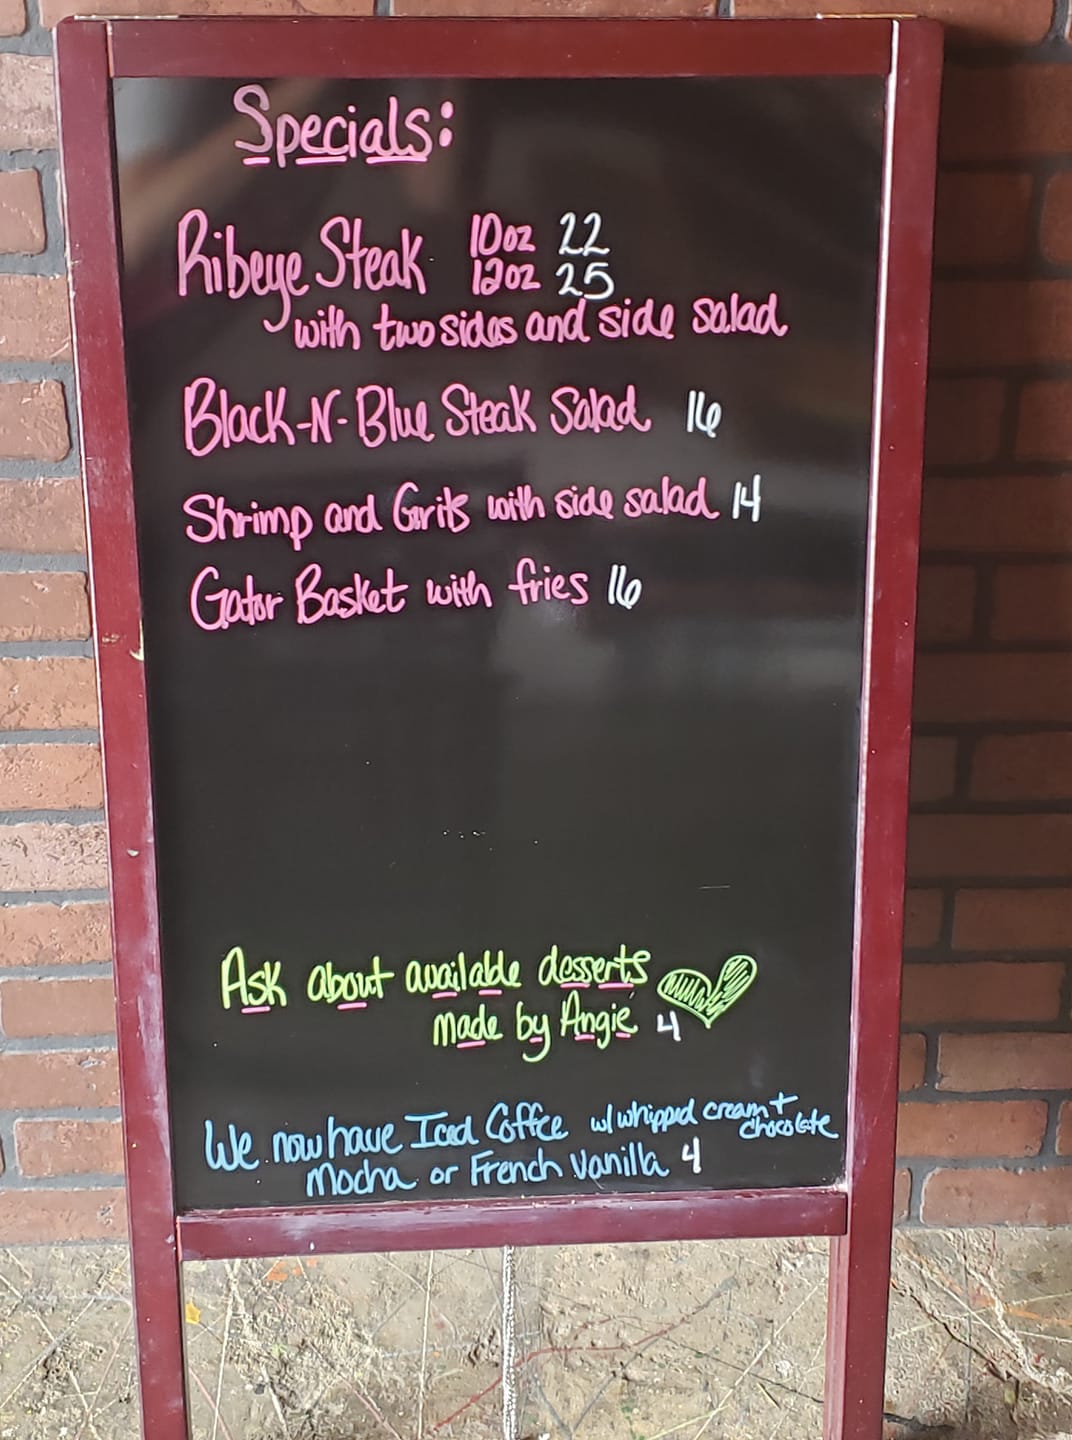 Specials:
Ribeye Steak 10oz 22
12oz 25
with two sides and side salad
Black-N-Blue Steak Salad 16
Shrimp and Grits with side salad 14
Gator Basket with fries 16
Ask about available desserts
made by Angie 4
We now have Iced Coffee w/ whipped cream +
chocolate
Mocha or French Vanilla 4